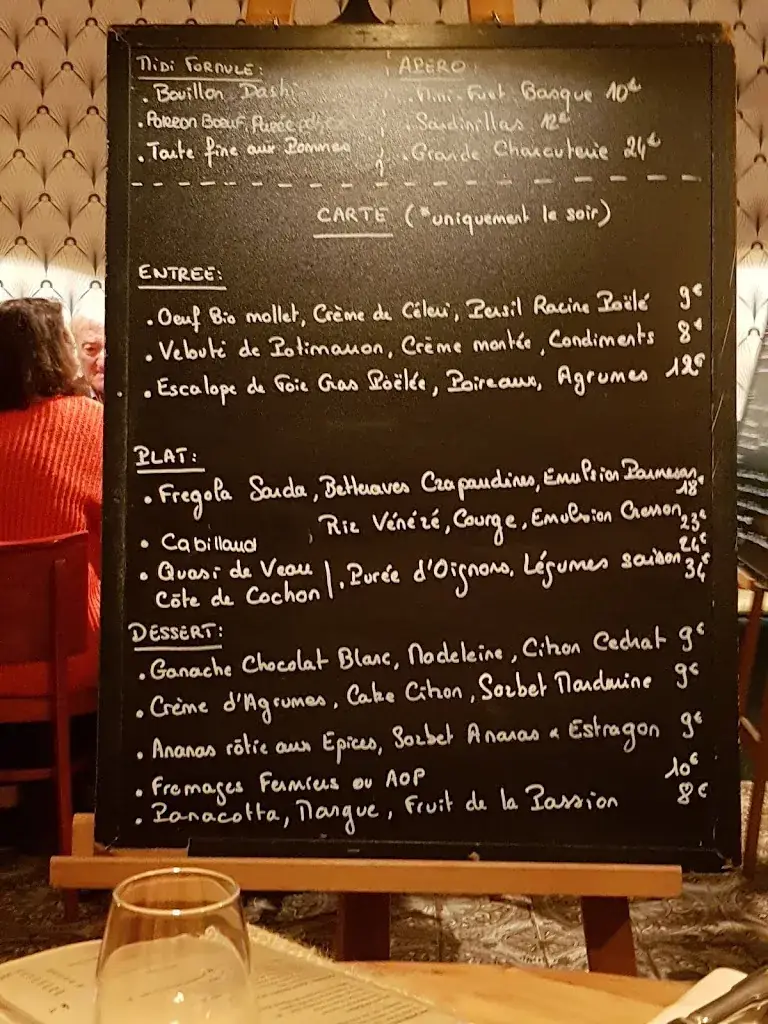 Midi Formule:
. Bouillon Dashi
. Paleron Boeuf, Purée
. Tarte fine aux Pommes
APERO:
. Mini-Fuet Basque 10€
. Sardinillas 12€
. Grande Charcuterie 24€
CARTE (*uniquement le soir)
ENTREE:
. Oeuf Bio mollet, Crème de Céleri, Persil Racine Poêlé 9€
. Velouté de Potimarron, Crème montée, Condiments 8€
. Escalope de Foie Gras Poêlée, Poireaux, Agrumes 12€
PLAT:
. Fregola Sarda, Betteraves Crapaudines, Emulsion Parmesan 18€
. Cabillaud, Riz Vénéré, Courge, Emulsion Cresson 23€
. Quasi de Veau 24€
Côte de Cochon |, Purée d'Oignons, Légumes saison 34€
DESSERT:
. Ganache Chocolat Blanc, Madeleine, Citron Cedrat 9€
. Crème d'Agrumes, Cake Citron, Sorbet Mandarine 9€
. Ananas rôtie aux Epices, Sorbet Ananas & Estragon 9€
. Fromages Fermiers ou AOP 10€
. Panacotta, Mangue, Fruit de la Passion 8€